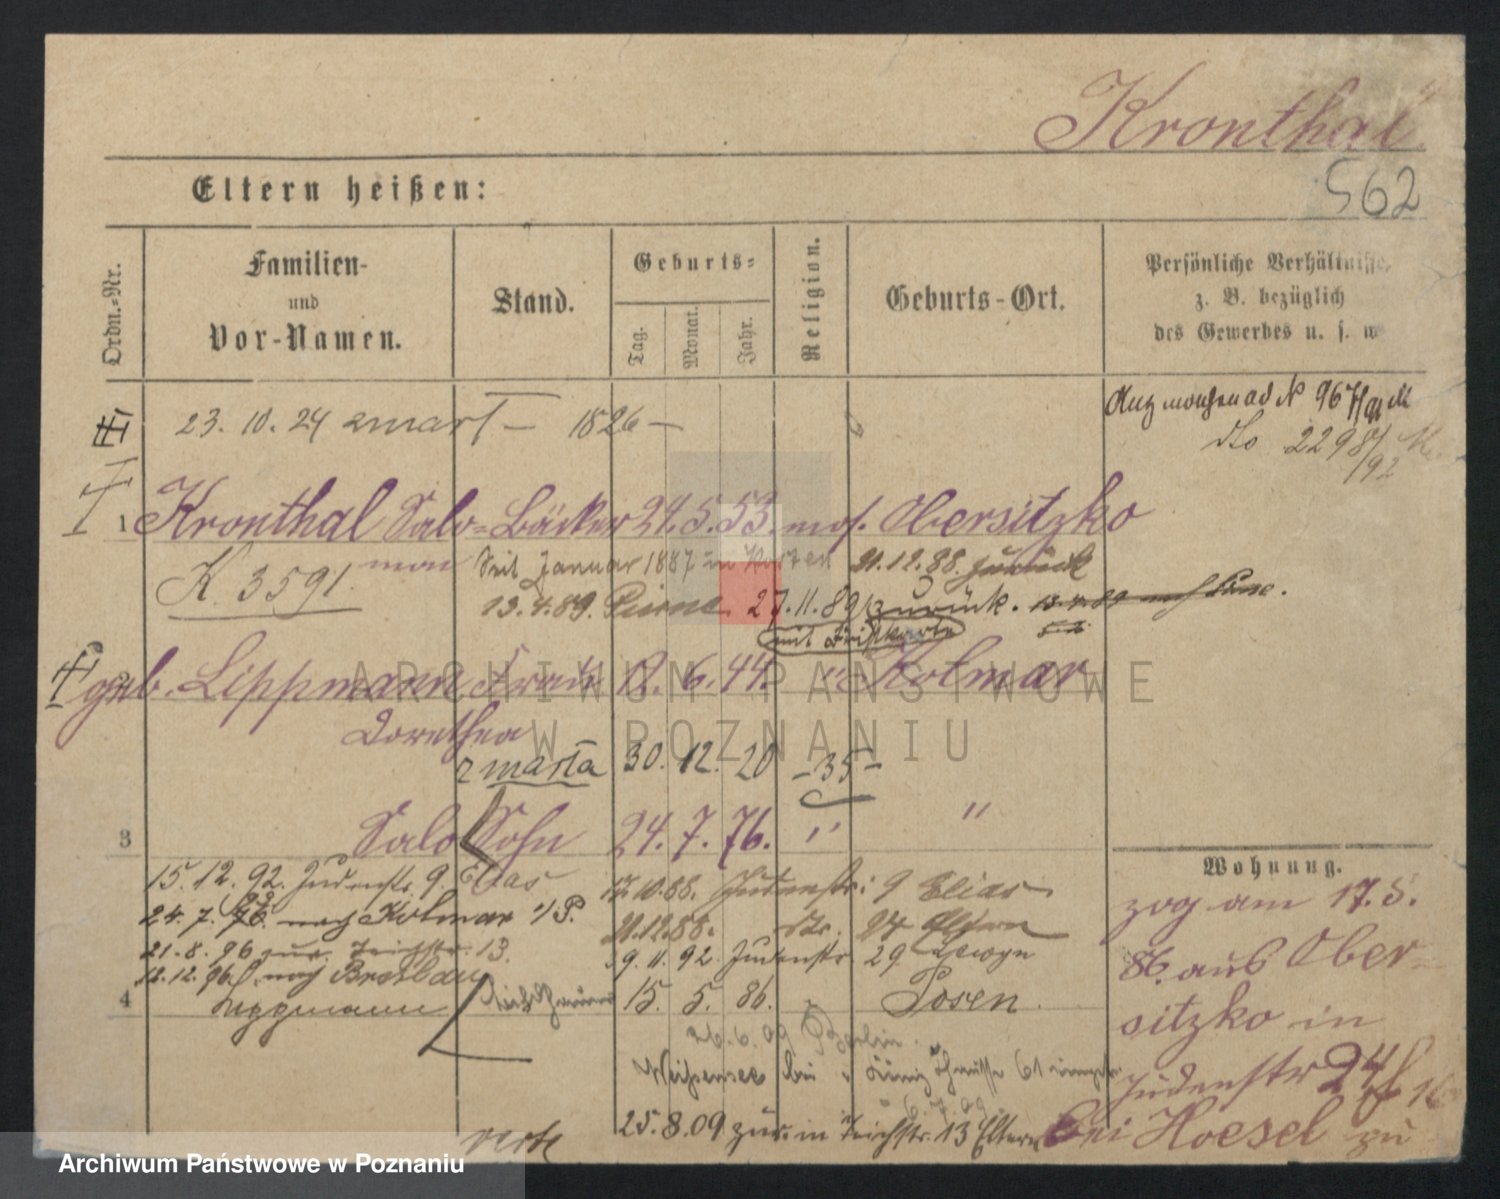 Kronthal
562
Eltern heißen:
Ordn.-Nr.
Familien-
und
Vor-Namen.
Stand.
Geburts-
Tag.
Monat.
Jahr.
Religion.
Geburts-Ort.
Persönliche Verhältnisse,
z. B. bezüglich
des Gewerbes u. s. w
23. 10. 24 zmarł — 1826 —
2298/92
1 Kronthal Salo- Bäcker 24. 5. 53. mos. Obersitzko
mon Seit Januar 1887 in 21.12.88. zurück
K. 3591.
13.4.89. 27.11.89 zurück.
geb. Lippmann Frau 12. 6. 44. " Kolmar
Dorothea
zmarła 30. 12. 20 -35-
3 Salo Sohn 24. 7. 76. " "
Wohnung.
15. 12. 92. Judenstr. 9. Elias 12.10.88. Judenstr. 9 Elias
24. 7. 96. nach Kolmar i/P. 21.12.88. 27 Eltern
21. 8. 96 zur. Teichstr. 13. 19. 11. 92 Judenstr 29
12. 12. 96. nach Breslau
4 Lippmann 15. 5. 86. Posen
26. 6. 09 Berlin
Weißensee bei 61
25. 8. 09. zur. in Teichstr. 13 Eltern
verte
zog am 17. 5.
86. aus Ober-
sitzko in
Judenstr 24
bei Hoesel zu
ARCHIWUM PAŃSTWOWE
W POZNANIU
Archiwum Państwowe w Poznaniu